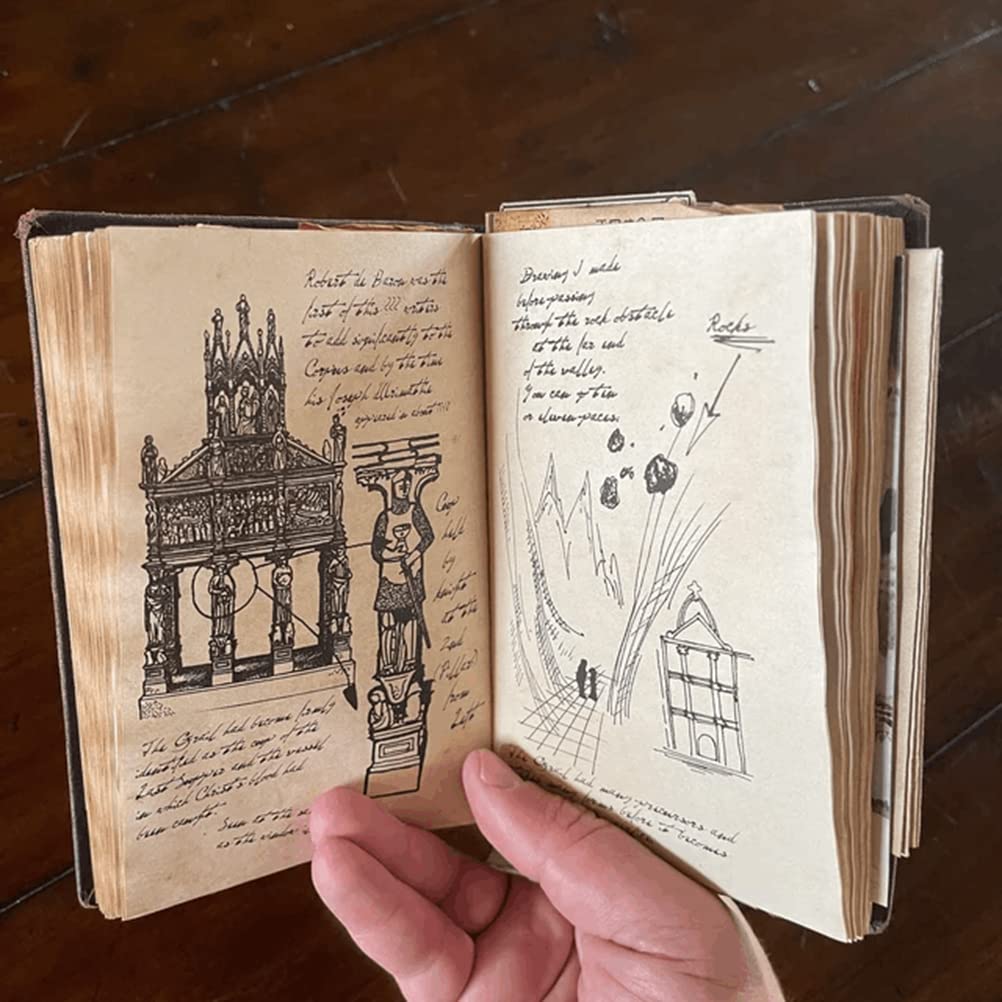 Robert de Baron was the
first of this ??? writers
to add significantly to the
Corpus and by the time
his Joseph
appeared in about
Cup
held
by
knight
at the
2nd
(Pillar)
from
Left
The Grail had become firmly
identified as the cup of the
Last Supper and the vessel
in which Christ's blood had
been caught.
Seen at the
as the window
Drawing I made
before passing
through the rock obstacle
at the far end
of the valley.
You can go ten
or eleven paces.
Rocks
The Grail had many precursors and
forms before it becomes